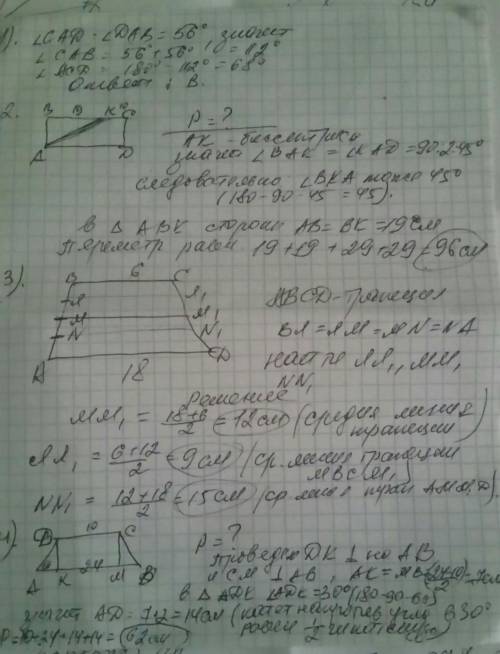 1). ∠CAD = ∠DAB = 56°, значит
∠CAB = 56° + 56° = 112°
∠ACD = 180° - 112° = 68°
Ответ: В.
2.
В 9 К С
А D
P = ?
АК - биссектриса
значит ∠BAK = ∠KAD = 90:2=45°
следовательно ∠BKA тоже 45°
(180-90-45=45).
в △ ABK стороны AB = BK = 19 см
Периметр равен 19+19+29+29=96 см
3).
B 6 C
M M₁
N N₁
A 18 D
ABCD-трапеция
найти
MM₁
NN₁
Решение
MM₁ = 18+6/2 = 12 см (средняя линия трапеции)
= 6+12/2 = 9 см (ср. линия трапеции MBCM₁)
NN₁ = 12+18/2 = 15 см (ср. линия трап AMM₁D)
4).
D 10 C
A K 24 M B
P = ?
Проведем DK ⊥ на AB
и CM ⊥ AB, AK = MB = = 7 см
в △ ADK ∠ADK = 30° (180-90-60)
значит AD = 7·2 = 14 см (катет напротив угла в 30° равен ½ гипотенузы)
P = 10+24+14+14 = 62 см